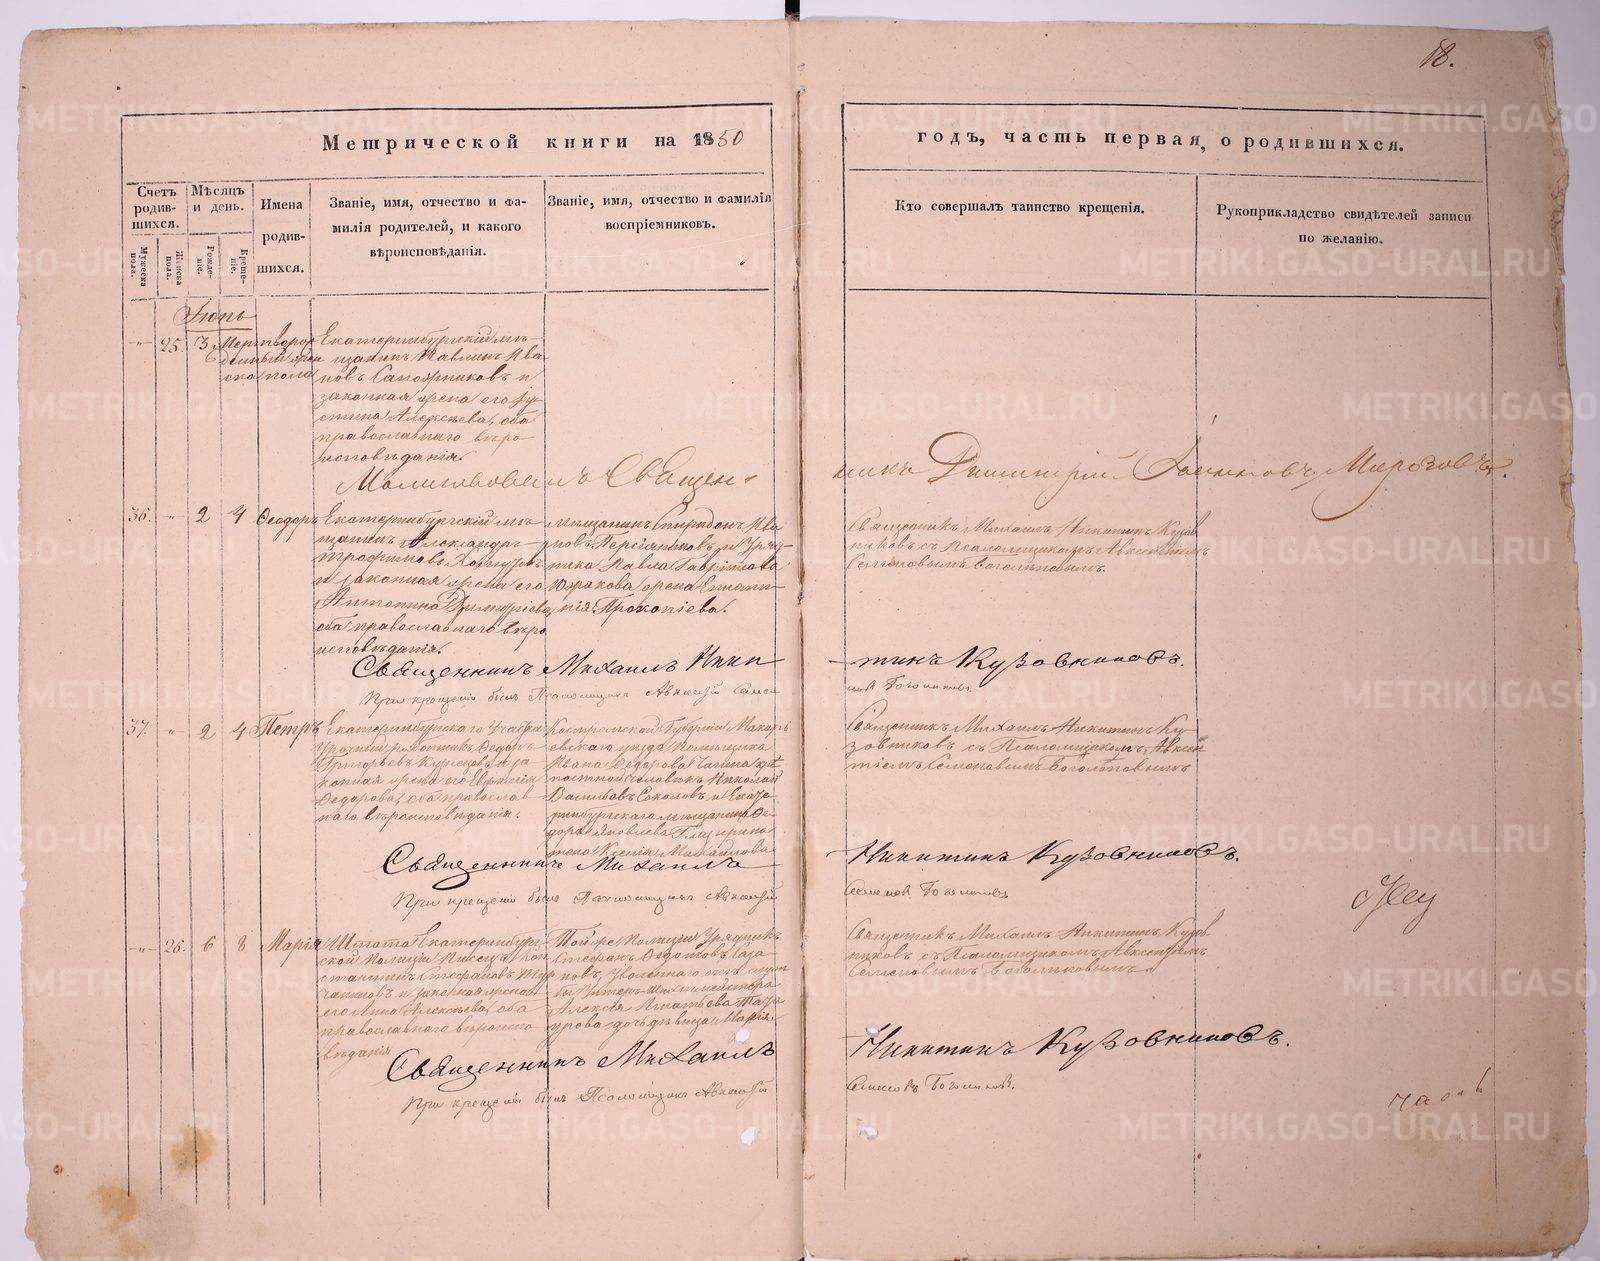 18.
Метрической книги на 1850
годъ, часть первая, о родившихся.
Счетъ родив-шихся.
Мужеска пола.
Женска пола.
Мѣсяцъ и день.
Рожде-ніе.
Креще-ніе.
Имена
родив-
шихся.
Званіе, имя, отчество и фа-
милія родителей, и какого
вѣроисповѣданія.
Званіе, имя, отчество и фамилія
воспріемниковъ.
Кто совершалъ таинство крещенія.
Рукоприкладство свидѣтелей записи
по желанію.
Іюнь
25. 3
Мертворож-
денный жен
ска пола
Екатеринбургскій мѣ-
щанинъ Павлинъ Ива
новъ Сапожниковъ и
законная жена его Іу-
стина Алексѣева, оба
православнаго вѣро
исповѣданія.
Молитвовалъ Священ-
никъ Димитрій Іоанновъ Мирозовъ.
36. 2 4 Ѳеодоръ
Екатеринбургскій мѣ-
щанинъ Александръ
Трофимовъ
и законная жена его
Антонина Димитріева
оба православнаго вѣро
исповѣданія.
мѣщанинъ Спиридонъ Ива
новъ и Уряд-
ника Павла Гаврілова
жена Епиѳа-
нія Прокопіева.
Священникъ Михаилъ Никитинъ Кузов
никовъ съ Псаломщикомъ Авксентіемъ
Семеновымъ Боголѣповымъ.
Священникъ Михаилъ Ники
тинъ Кузовниковъ.
При крещеніи былъ Псаломщикъ Авксентій Семе
новъ
37. 2 4 Петръ
Екатеринбургскаго
Урочный работникъ Ѳедоръ
Григорьевъ Кузнецовъ и за
конная жена его Евгенія
Ѳедорова, оба православ
наго вѣроисповѣданія.
Костромской Губерніи Макарь
евскаго уѣзда Помѣщика
Ивана Ѳедорова крѣ
постной человѣкъ Николай
Васильевъ Соколовъ и Екате
ринбургскаго мѣщанина Ѳе
дора Яковлева
жена Ксенія Михайлова
Священникъ Михаилъ Никитинъ Ку-
зовниковъ съ Псаломщикомъ Авксен
тіемъ Семеновымъ Боголѣповымъ
Священникъ Михаилъ
Никитинъ Кузовниковъ.
При крещеніи былъ Псаломщикъ Авксентій
Семеновъ
26. 6 8 Марія
Штата Екатеринбург-
ской Полиціи Писецъ Кон
стантинъ Стефановъ Тур
чаниновъ и законная жена
его Анна Алексѣева, оба
православнаго вѣроиспо
вѣданія
Той же Полиціи Урядникъ
Стефанъ Ѳедотовъ Саза
новъ, Уволеннаго отъ служ
бы Унтеръ-Шихтмейстера
Алексія Игнатьева
дочь дѣвица Марія.
Священникъ Михаилъ Никитинъ Кузов
никовъ съ Псаломщикомъ Авксентіемъ
Семеновымъ Боголѣповымъ
Священникъ Михаилъ
Никитинъ Кузовниковъ.
При крещеніи былъ Псаломщикъ Авксентій
Семеновъ
METRIKI.GASO-URAL.RU